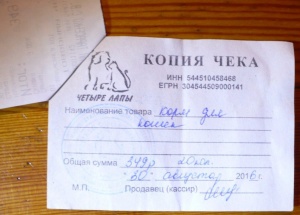 КОПИЯ ЧЕКА
ИНН 544510458468
ЕГРН 304544509000141
ЧЕТЫРЕ ЛАПЫ
Наименование товара корм для
кошек
Общая сумма 349р 20коп.
"30" августа 2016г.
М.П. Продавец (кассир)